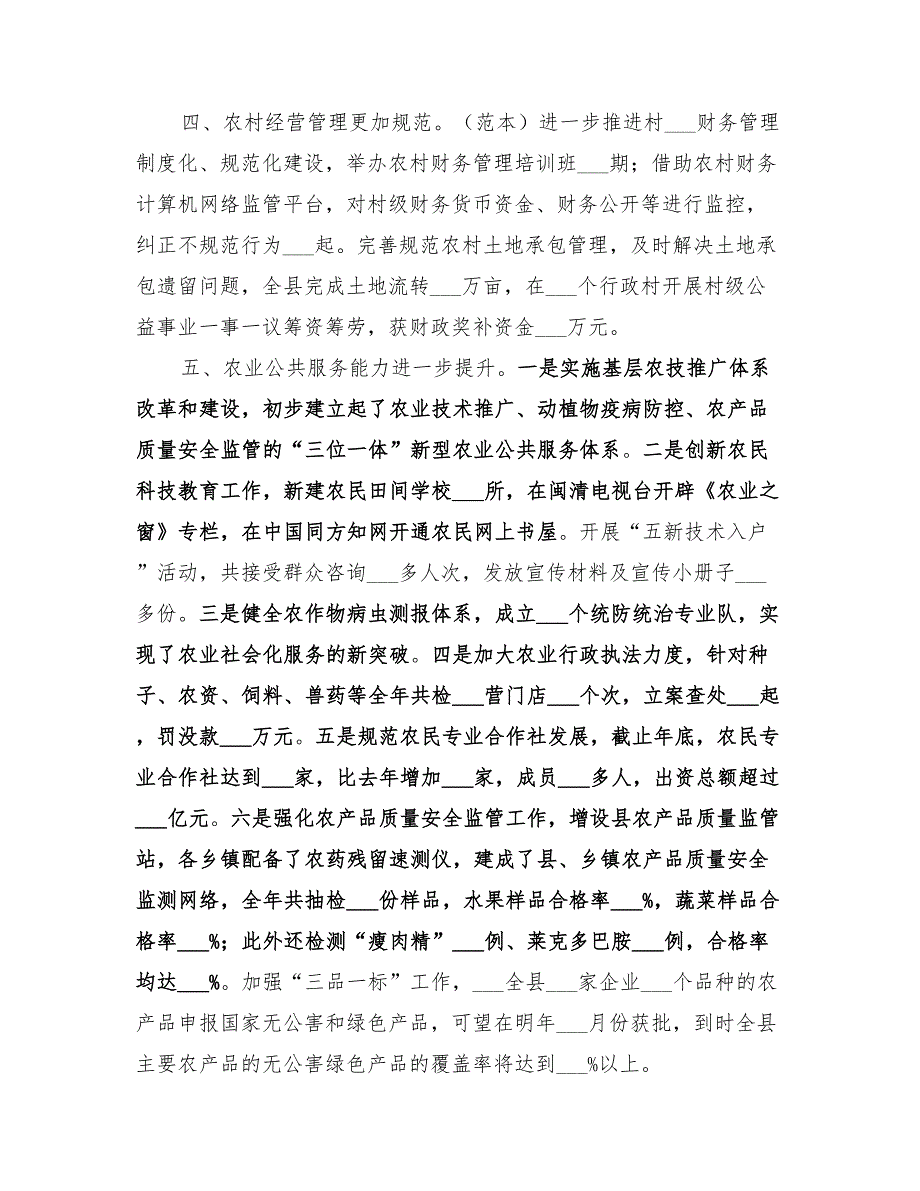 四、农村经营管理更加规范。（范本）进一步推进村___财务管理
制度化、规范化建设，举办农村财务管理培训班___期；借助农村财务
计算机网络监管平台，对村级财务货币资金、财务公开等进行监控，
纠正不规范行为___起。完善规范农村土地承包管理，及时解决土地承
包遗留问题，全县完成土地流转___万亩，在___个行政村开展村级公
益事业一事一议筹资筹劳，获财政奖补资金___万元。
五、农业公共服务能力进一步提升。一是实施基层农技推广体系
改革和建设，初步建立起了农业技术推广、动植物疫病防控、农产品
质量安全监管的“三位一体”新型农业公共服务体系。二是创新农民
科技教育工作，新建农民田间学校___所，在闽清电视台开辟《农业之
窗》专栏，在中国同方知网开通农民网上书屋。开展“五新技术入户
”活动，共接受群众咨询___多人次，发放宣传材料及宣传小册子___
多份。三是健全农作物病虫测报体系，成立___个统防统治专业队，实
现了农业社会化服务的新突破。四是加大农业行政执法力度，针对种
子、农资、饲料、兽药等全年共检___营门店___个次，立案查处___起
，罚没款___万元。五是规范农民专业合作社发展，截止年底，农民专
业合作社达到___家，比去年增加___家，成员___多人，出资总额超过
___亿元。六是强化农产品质量安全监管工作，增设县农产品质量监管
站，各乡镇配备了农药残留速测仪，建成了县、乡镇农产品质量安全
监测网络，全年共抽检___份样品，水果样品合格率___%，蔬菜样品合
格率___%；此外还检测“瘦肉精”___例、莱克多巴胺___例，合格率
均达___%。加强“三品一标”工作，___全县___家企业___个品种的农
产品申报国家无公害和绿色产品，可望在明年___月份获批，到时全县
主要农产品的无公害绿色产品的覆盖率将达到___%以上。